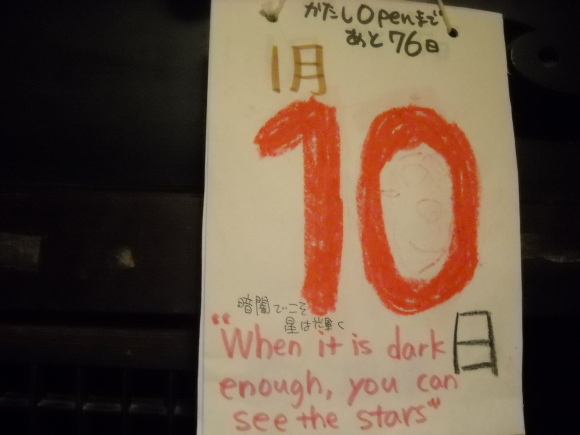 かたしOpenまで
あと76日
1月
10
日
暗闇でこそ
星は光輝く
"When it is dark
enough, you can
see the stars"